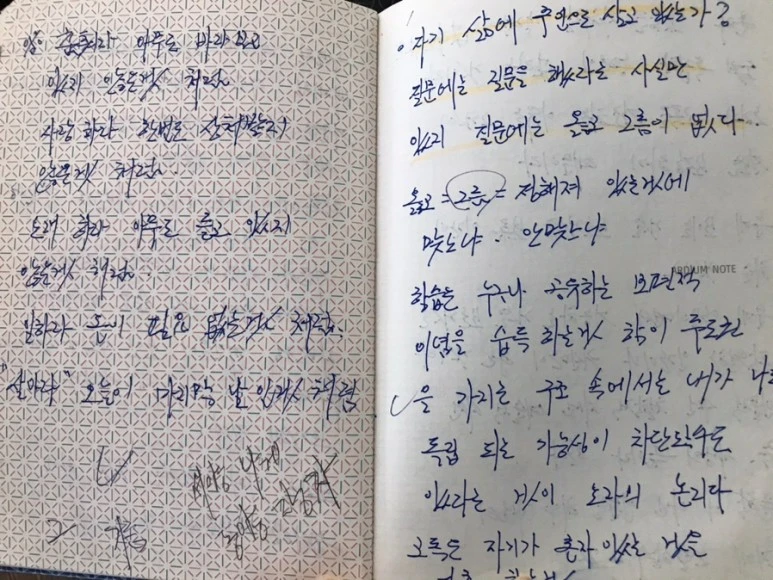 춤춰라 아무도 바라보고
있지 않은것 처럼
사랑하라 한번도 상처받지
않은것 처럼.
노래 하라 아무도 듣고 있지
않은것 처럼.
일하라 돈이 필요 없는것 처럼.
"살아라" 오늘이 마지막 날 인것 처럼
자기 삶에 주인으로 살고 있는가?
질문에는 질문을 했다라는 사실만
있지 질문에는 옳고 그름이 없다.
옳고 = 그름 = 정해져 있는것에
맞느냐. 안맞느냐
ARDIUM NOTE
학습은 누구나 공유하는 보편적
이념을 습득 하는것 학이 주도권
을 가지는 구조 속에서는 내가 나로
독립 되는 가능성이 차단될수도
있다라는 것이 노자의 논리다
고독은 자기가 혼자 있는 것을